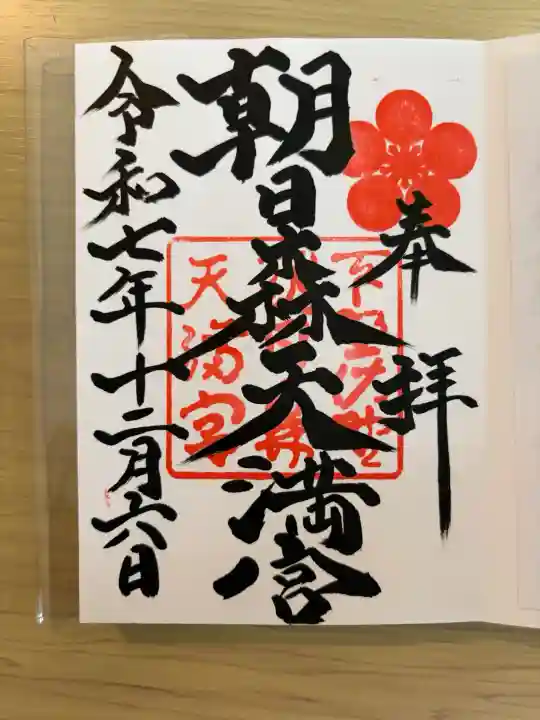 奉拝
朝日森天満宮
令和七年十二月六日
天満宮